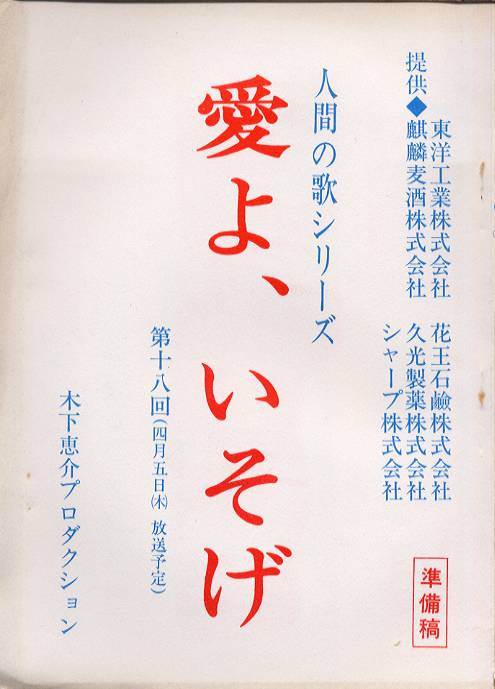 提供◆
東洋工業株式会社
麒麟麦酒株式会社
花王石鹸株式会社
久光製薬株式会社
シャープ株式会社
準備稿
人間の歌シリーズ
愛よ、いそげ
第十八回(四月五日㈭ 放送予定)
木下恵介プロダクション